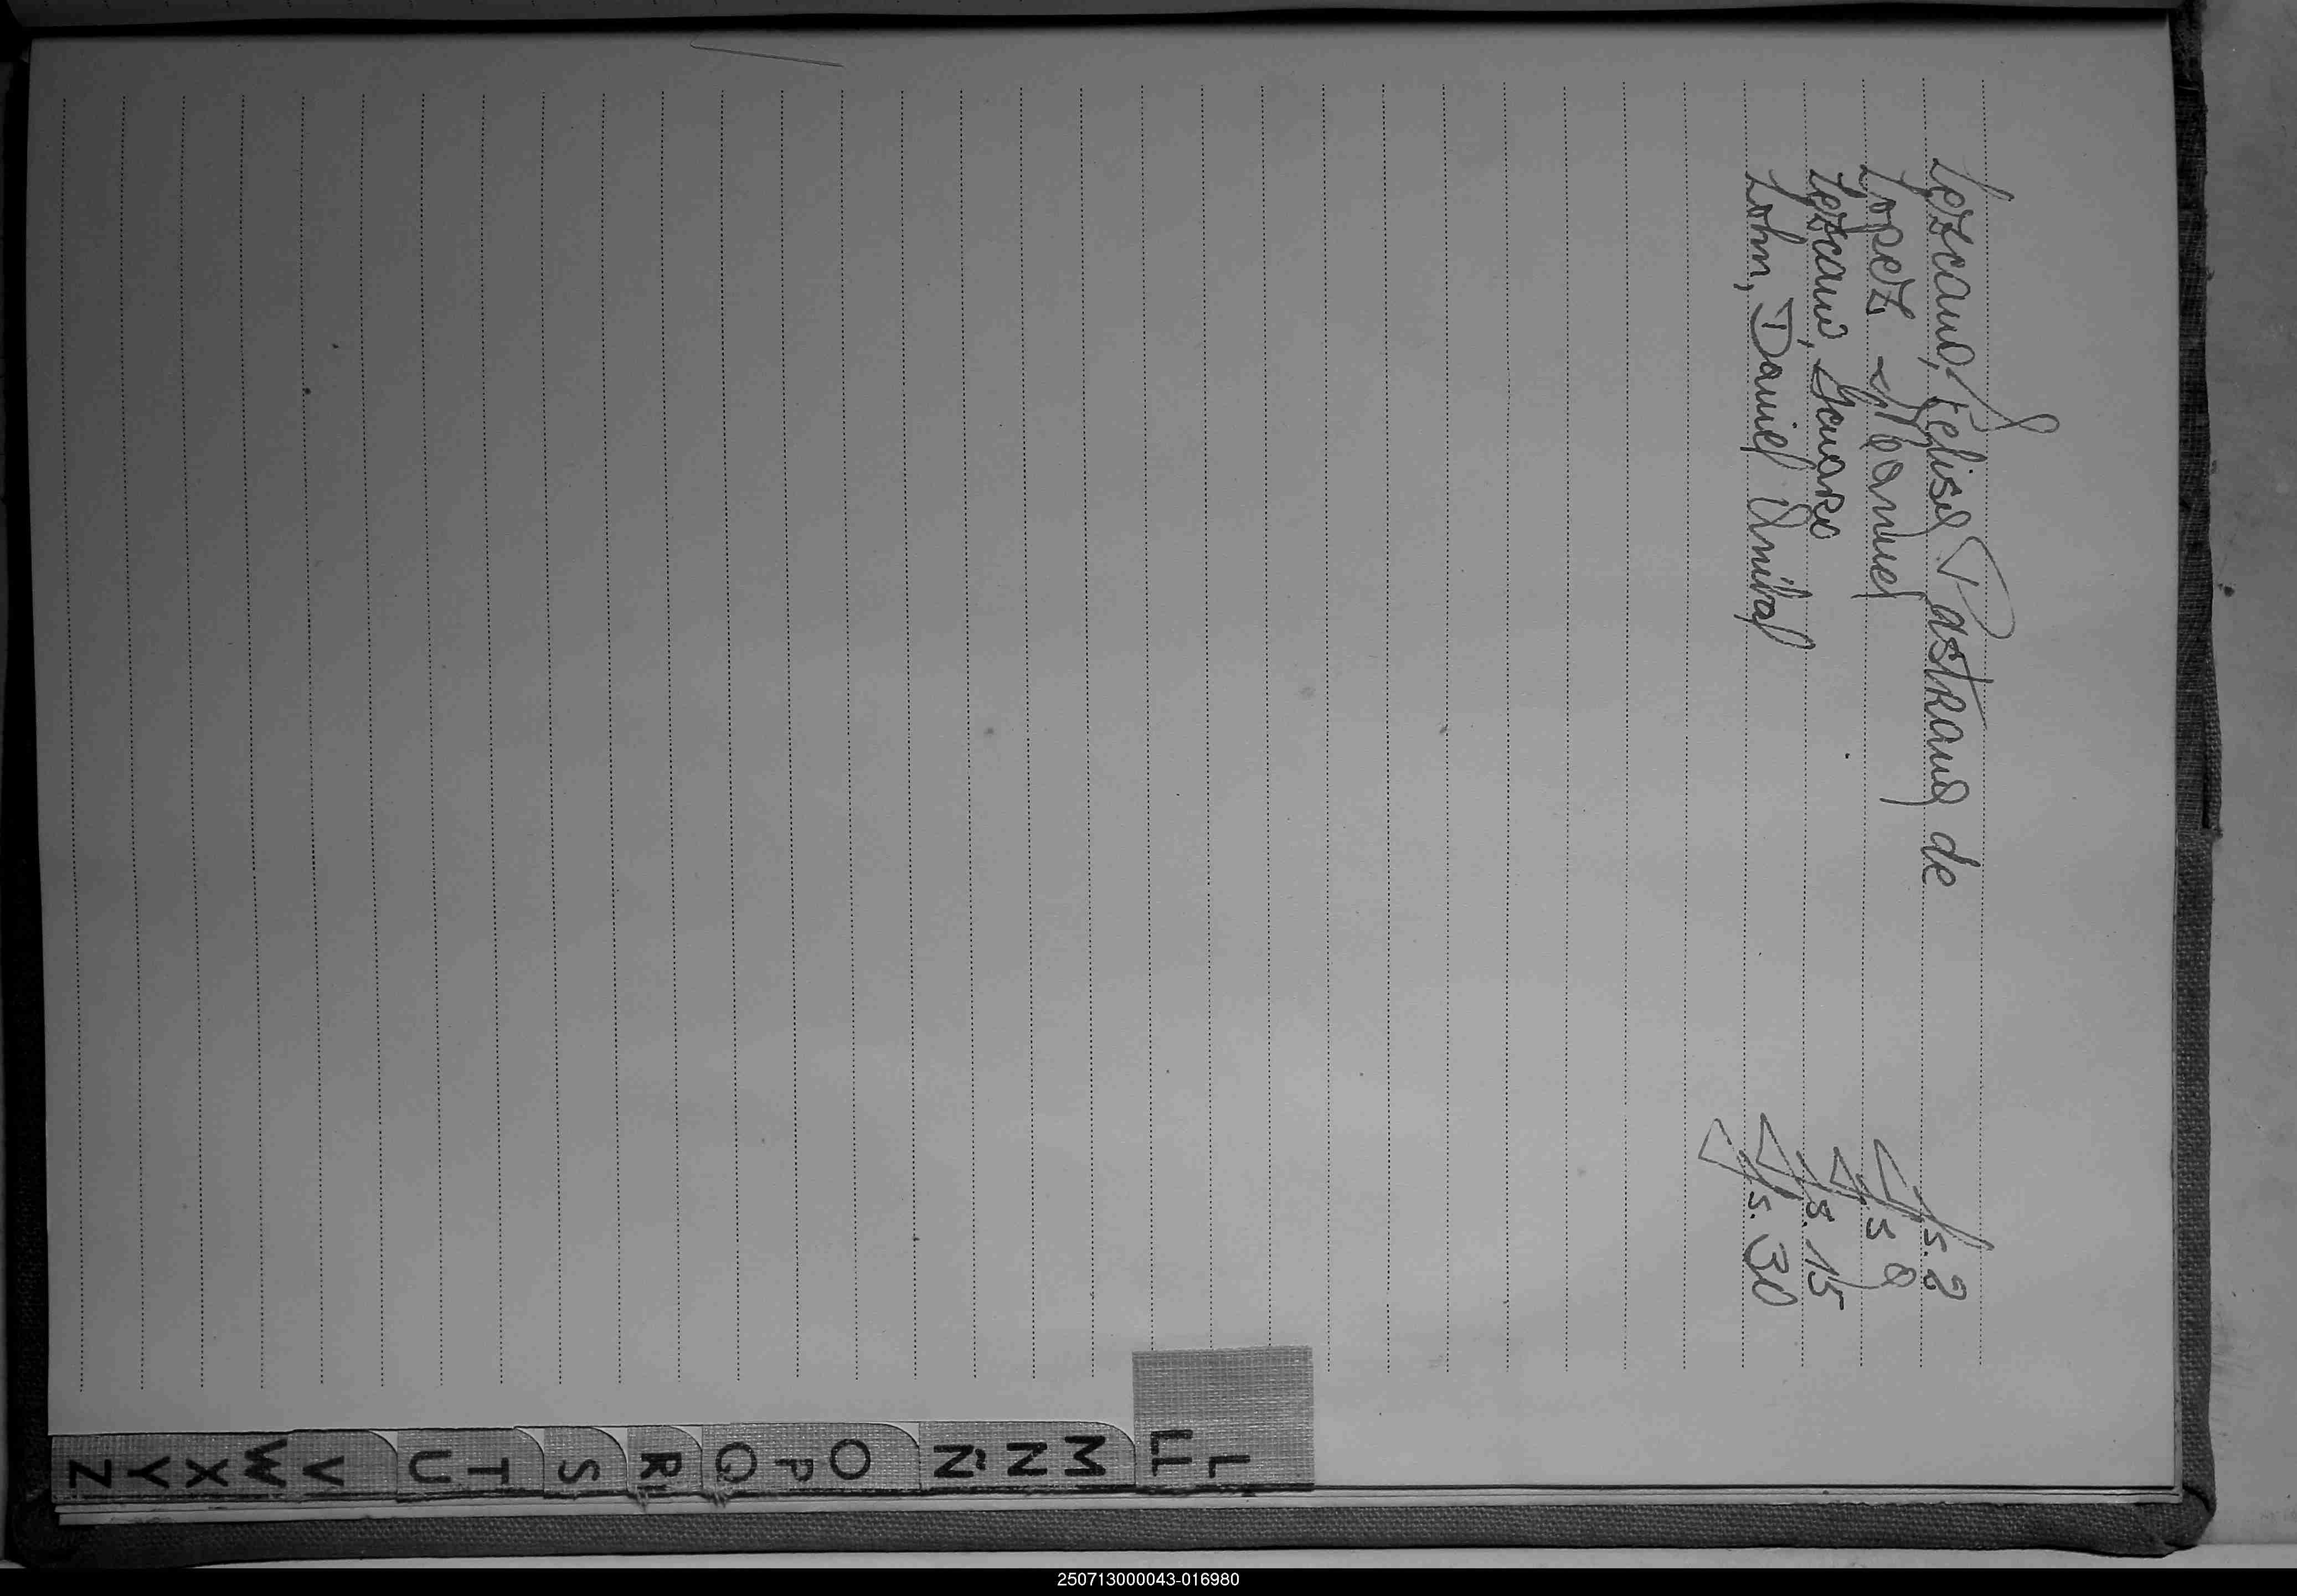 L
Lezcano, Felisa Pastrana de fs. 2
Lopez Manuel fs 8
Lezcano, Genaro fs. 15
Lohn, Daniel Anibal fs. 30
L
LL
M
N
Ñ
O
P
Q
R
S
T
U
V
W
X
Y
Z
250713000043-016980